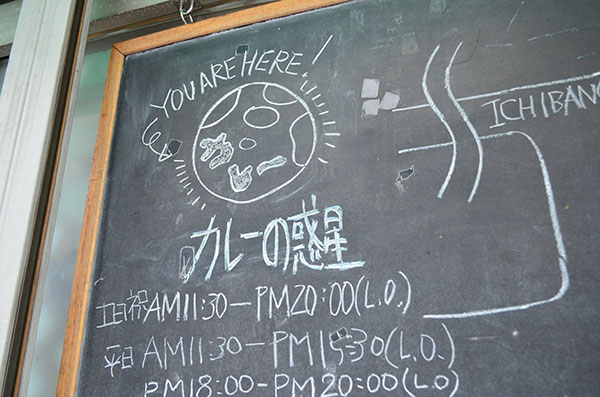 YOU ARE HERE!
カレー
ICHIBAN
カレーの惑星
土日祝 AM11:30-PM20:00(L.O.)
平日 AM11:30-PM15:30(L.O.)
PM18:00-PM20:00(L.O)